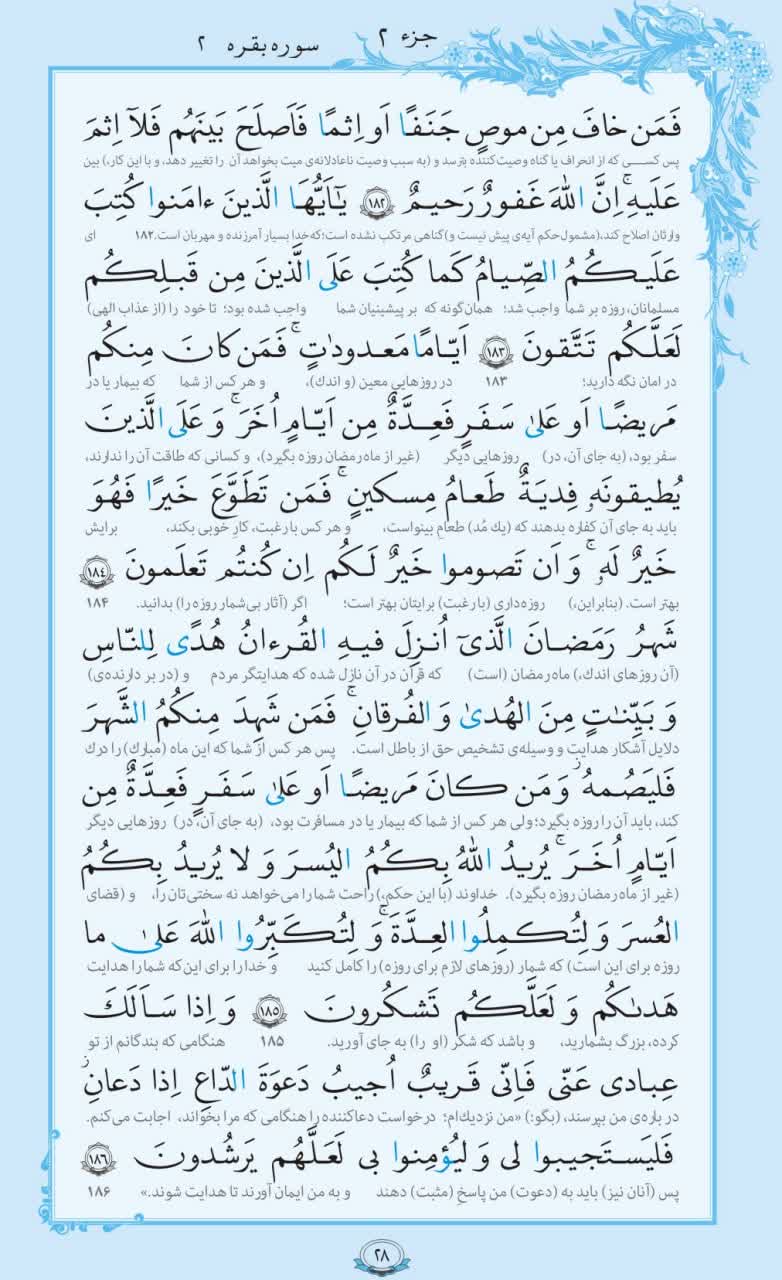 جزء ۲
سوره بقره ۲
فَمَن خافَ مِن موصٍ جَنَفًا اَو اِثمًا فَاَصلَحَ بَينَهُم فَلآ اِثمَ
پس کســی که از انحراف یا گناه وصیت‌کننده بترسد و (به سبب وصیت ناعادلانه‌ی میت بخواهد آن را تغییر دهد، و با این کار،) بین
عَلَيهِ ۚ اِنَّ اللّٰهَ غَفورٌ رَحيمٌ ١٨٢ يٰٓاَيُّهَا الَّذينَ ءامَنوا كُتِبَ
وارثان اصلاح کند، (مشمول حکم آیه‌ی پیش نیست و) گناهی مرتکب نشده است؛ که خدا بسیار آمرزنده و مهربان است. ۱۸۲ ای
عَلَيكُمُ الصِّيامُ كَما كُتِبَ عَلَى الَّذينَ مِن قَبلِكُم
مسلمانان، روزه بر شما واجب شد؛ همان‌گونه که بر پیشینیان شما واجب شده بود؛ تا خود را (از عذاب الهی)
لَعَلَّكُم تَتَّقونَ ١٨٣ اَيّامًا مَعدوداتٍ ۚ فَمَن كانَ مِنكُم
در امان نگه دارید؛ ۱۸۳ در روزهایی معین (و اندك)، و هر کس از شما که بیمار یا در
مَريضًا اَو عَلىٰ سَفَرٍ فَعِدَّةٌ مِن اَيّامٍ اُخَرَ ۚ وَ عَلَى الَّذينَ
سفر بود، (به جای آن، در) روزهایی دیگر (غیر از ماه رمضان روزه بگیرد)، و کسانی که طاقت آن را ندارند،
يُطيقونَهٗ فِديَةٌ طَعامُ مِسكينٍ ۚ فَمَن تَطَوَّعَ خَيرًا فَهُوَ
باید به جای آن کفاره بدهند که (یك مُد) طعامِ بینواست، و هر کس با رغبت، کارِ خوبی بکند، برایش
خَيرٌ لَهٗ ۚ وَ اَن تَصوموا خَيرٌ لَكُم اِن كُنتُم تَعلَمونَ ١٨٤
بهتر است. (بنابراین،) روزه‌داری (با رغبت) برایتان بهتر است؛ اگر (آثار بی‌شمار روزه را) بدانید. ۱۸۴
شَهرُ رَمَضانَ الَّذىٓ اُنزِلَ فيهِ القُرءانُ هُدًى لِلنّاسِ
(آن روزهای اندك،) ماه رمضان (است) که قرآن در آن نازل شده که هدایتگر مردم و (در بر دارنده‌ی)
وَ بَيِّنٰتٍ مِنَ الهُدىٰ وَ الفُرقانِ ۚ فَمَن شَهِدَ مِنكُمُ الشَّهرَ
دلایل آشکار هدایت و وسیله‌ی تشخیص حق از باطل است. پس هر کس از شما که این ماه (مبارك) را درك
فَليَصُمهُ ۖ وَ مَن كانَ مَريضًا اَو عَلىٰ سَفَرٍ فَعِدَّةٌ مِن
کند، باید آن را روزه بگیرد؛ ولی هر کس از شما که بیمار یا در مسافرت بود، (به جای آن، در) روزهایی دیگر
اَيّامٍ اُخَرَ ۚ يُريدُ اللّٰهُ بِكُمُ اليُسرَ وَ لا يُريدُ بِكُمُ
(غیر از ماه رمضان روزه بگیرد). خداوند (با این حکم،) راحت شما را می‌خواهد نه سختی‌تان را، و (قضای
العُسرَ وَ لِتُكمِلُوا العِدَّةَ ۚ وَ لِتُكَبِّرُوا اللّٰهَ عَلىٰ ما
روزه برای این است) که شمار (روزهای لازم برای روزه) را کامل کنید و خدا را برای این‌که شما را هدایت
هَدىٰكُم وَ لَعَلَّكُم تَشكُرونَ ١٨٥ وَ اِذا سَاَلَكَ
کرده، بزرگ بشمارید، و باشد که شکر (او را) به جای آورید. ۱۸۵ هنگامی که بندگانم از تو
عِبادى عَنّى فَاِنّى قَريبٌ اُجيبُ دَعوَةَ الدّاعِ اِذا دَعانِ ۖ
در باره‌ی من بپرسند، (بگو:) «من نزدیك‌ام؛ درخواست دعاکننده را هنگامی که مرا بخواند، اجابت می‌کنم.
فَليَستَجيبوا لى وَ ليُؤمِنوا بى لَعَلَّهُم يَرشُدونَ ١٨٦
پس (آنان نیز) باید به (دعوت) من پاسخِ (مثبت) دهند و به من ایمان آورند تا هدایت شوند.» ۱۸۶
۲۸